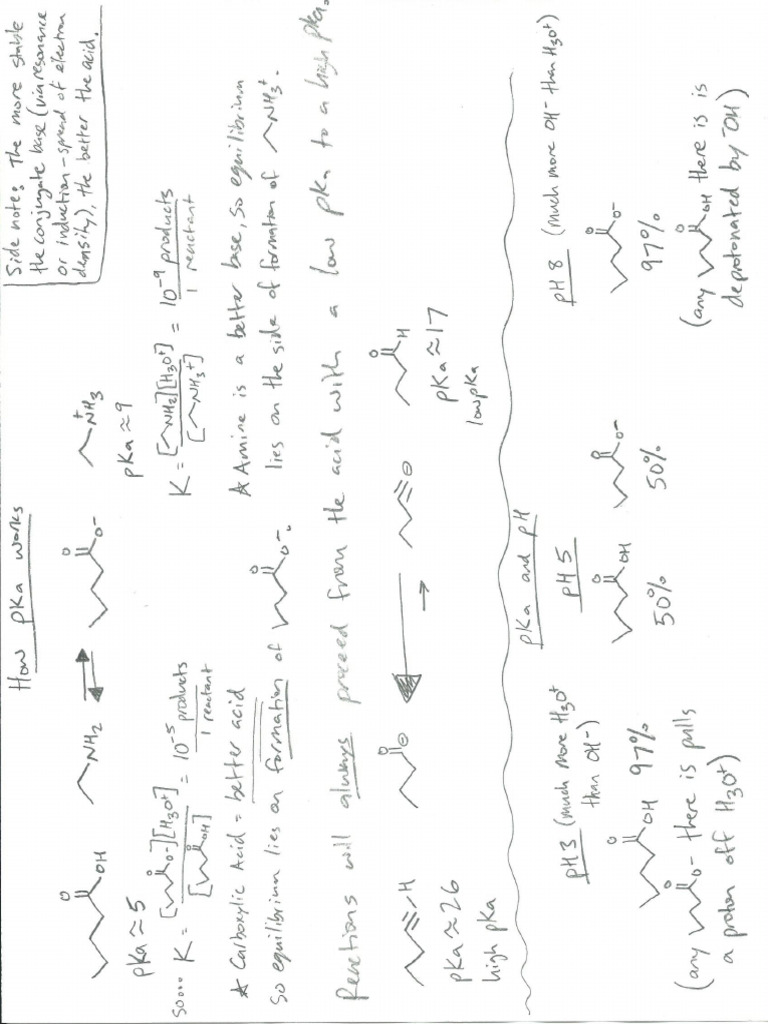 How pKa works
Side note: The more stable
the conjugate base (via resonance
or induction - spread of electron
density), the better the acid.
O OH NH2 O O- +NH3
pKa ≈ 5
pKa ≈ 9
soooo K = [O O-][H3O+] / [O OH] = 10-5 products / 1 reactant
K = [NH2][H3O+] / [NH3+] = 10-9 products / 1 reactant
* Carboxylic Acid = better acid
so equilibrium lies on formation of O O-.
* Amine is a better base, so equilibrium
lies on the side of formation of NH3+.
Reactions will always proceed from the acid with a low pKa to a high pKa.
H O ⊖ ⊖ O H
pKa ≈ 26
high pKa
pKa ≈ 17
low pKa
pKa and pH
pH 3 (much more H3O+
than OH-)
O OH 97%
(any O O- there is pulls
a proton off H3O+)
pH 5
O OH O O-
50% 50%
pH 8 (much more OH- than H3O+)
O O-
97%
(any O OH there is is
deprotonated by -OH)